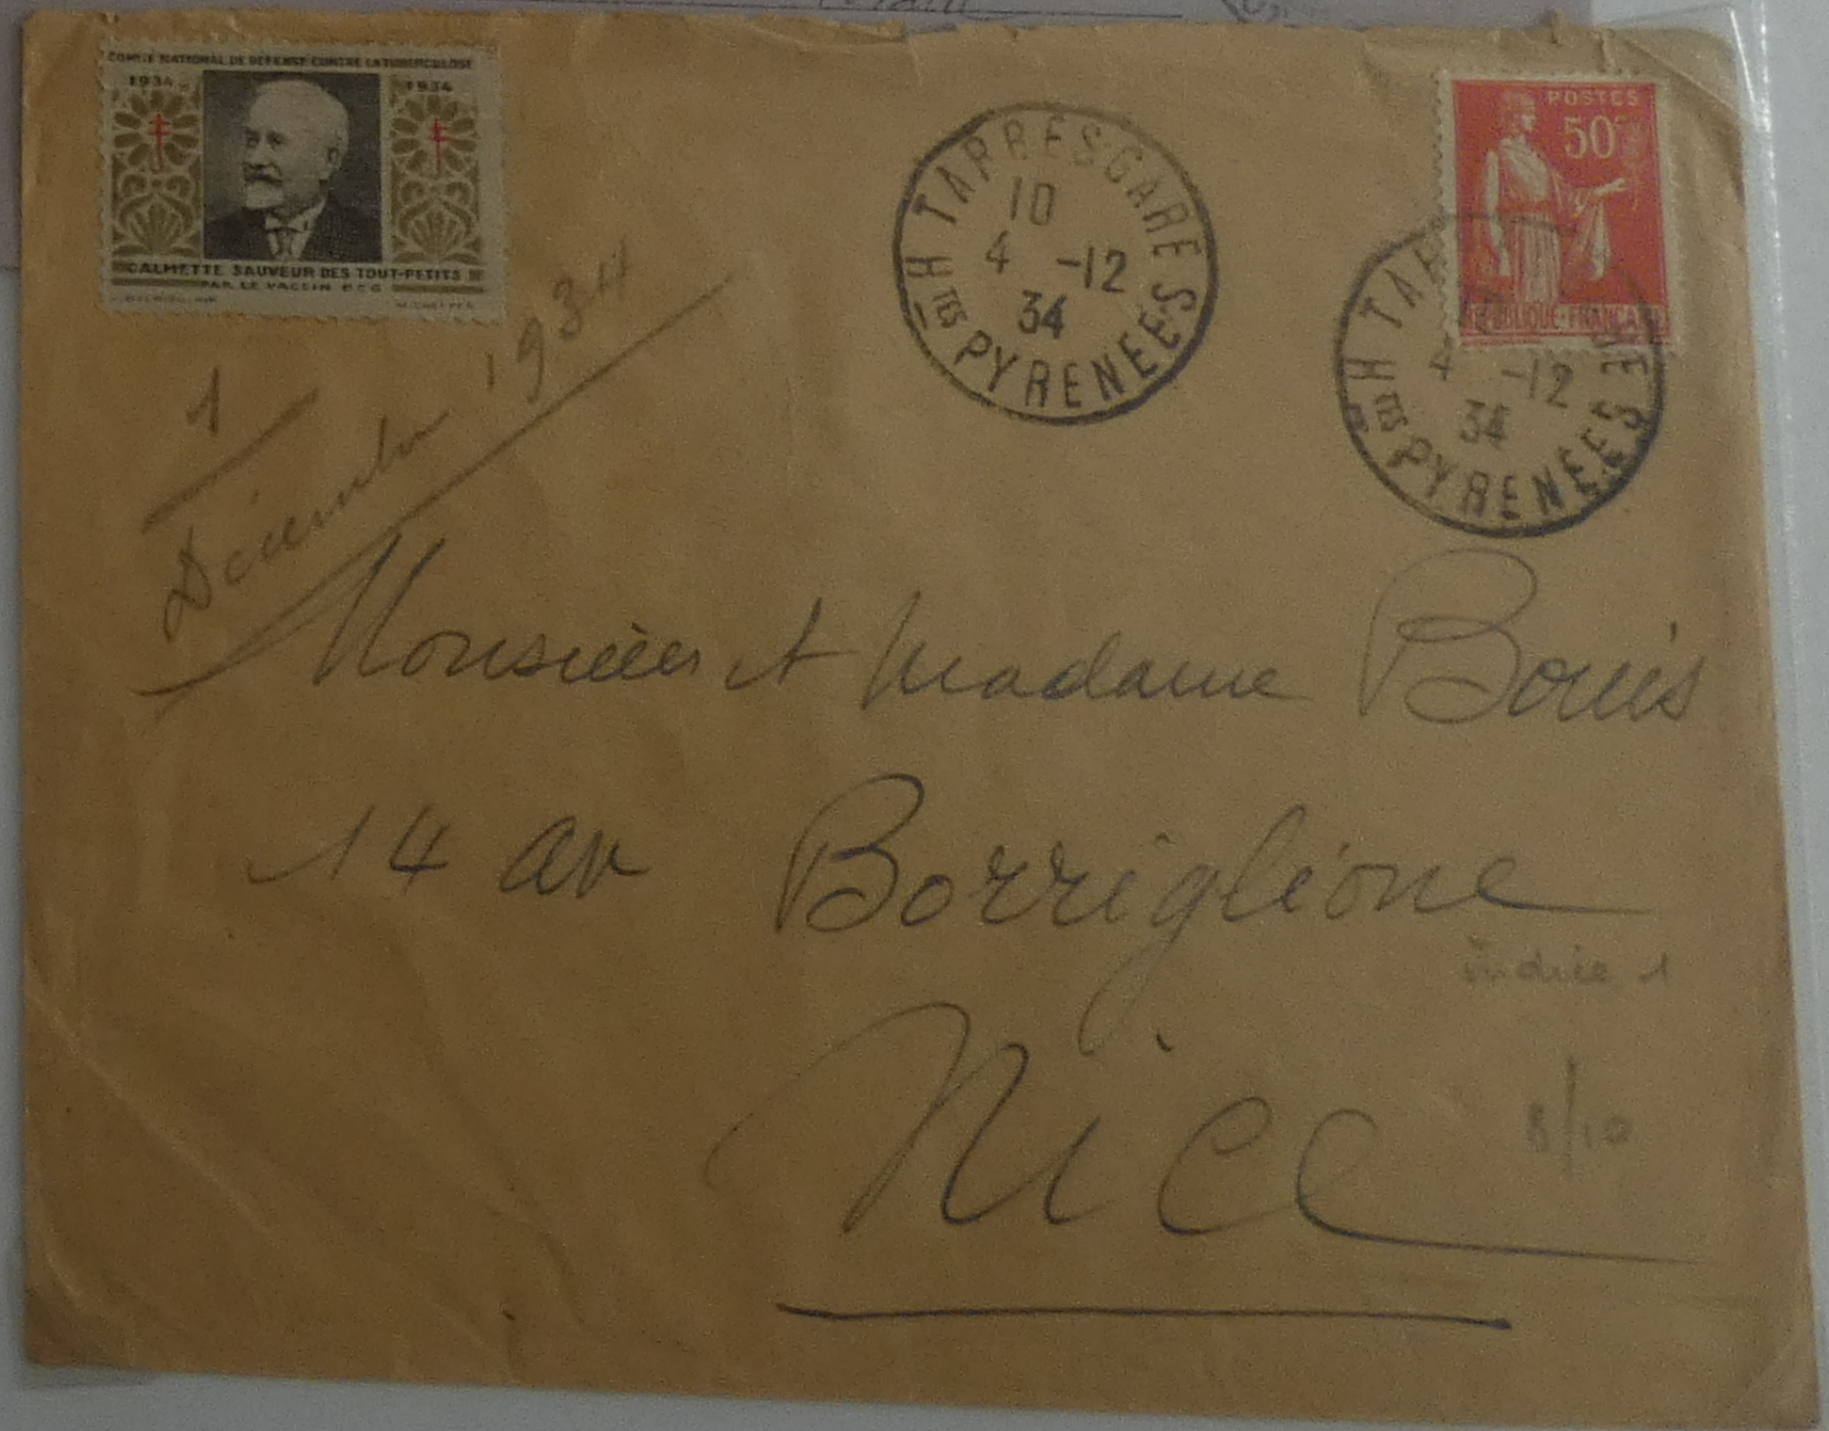 COMITÉ NATIONAL DE DÉFENSE CONTRE LA TUBERCULOSE
1934 1934
CALMETTE SAUVEUR DES TOUT-PETITS
PAR LE VACCIN BCG
TARBES GARE
10
4 -12
34
HTES PYRENEES
POSTES
50c
REPUBLIQUE FRANCAISE
TARBES GARE
10
4 -12
34
HTES PYRENEES
1
Décembre 1934
Monsieur et Madame Bouis
14 av Borriglione
Nice
indice 1
8/10